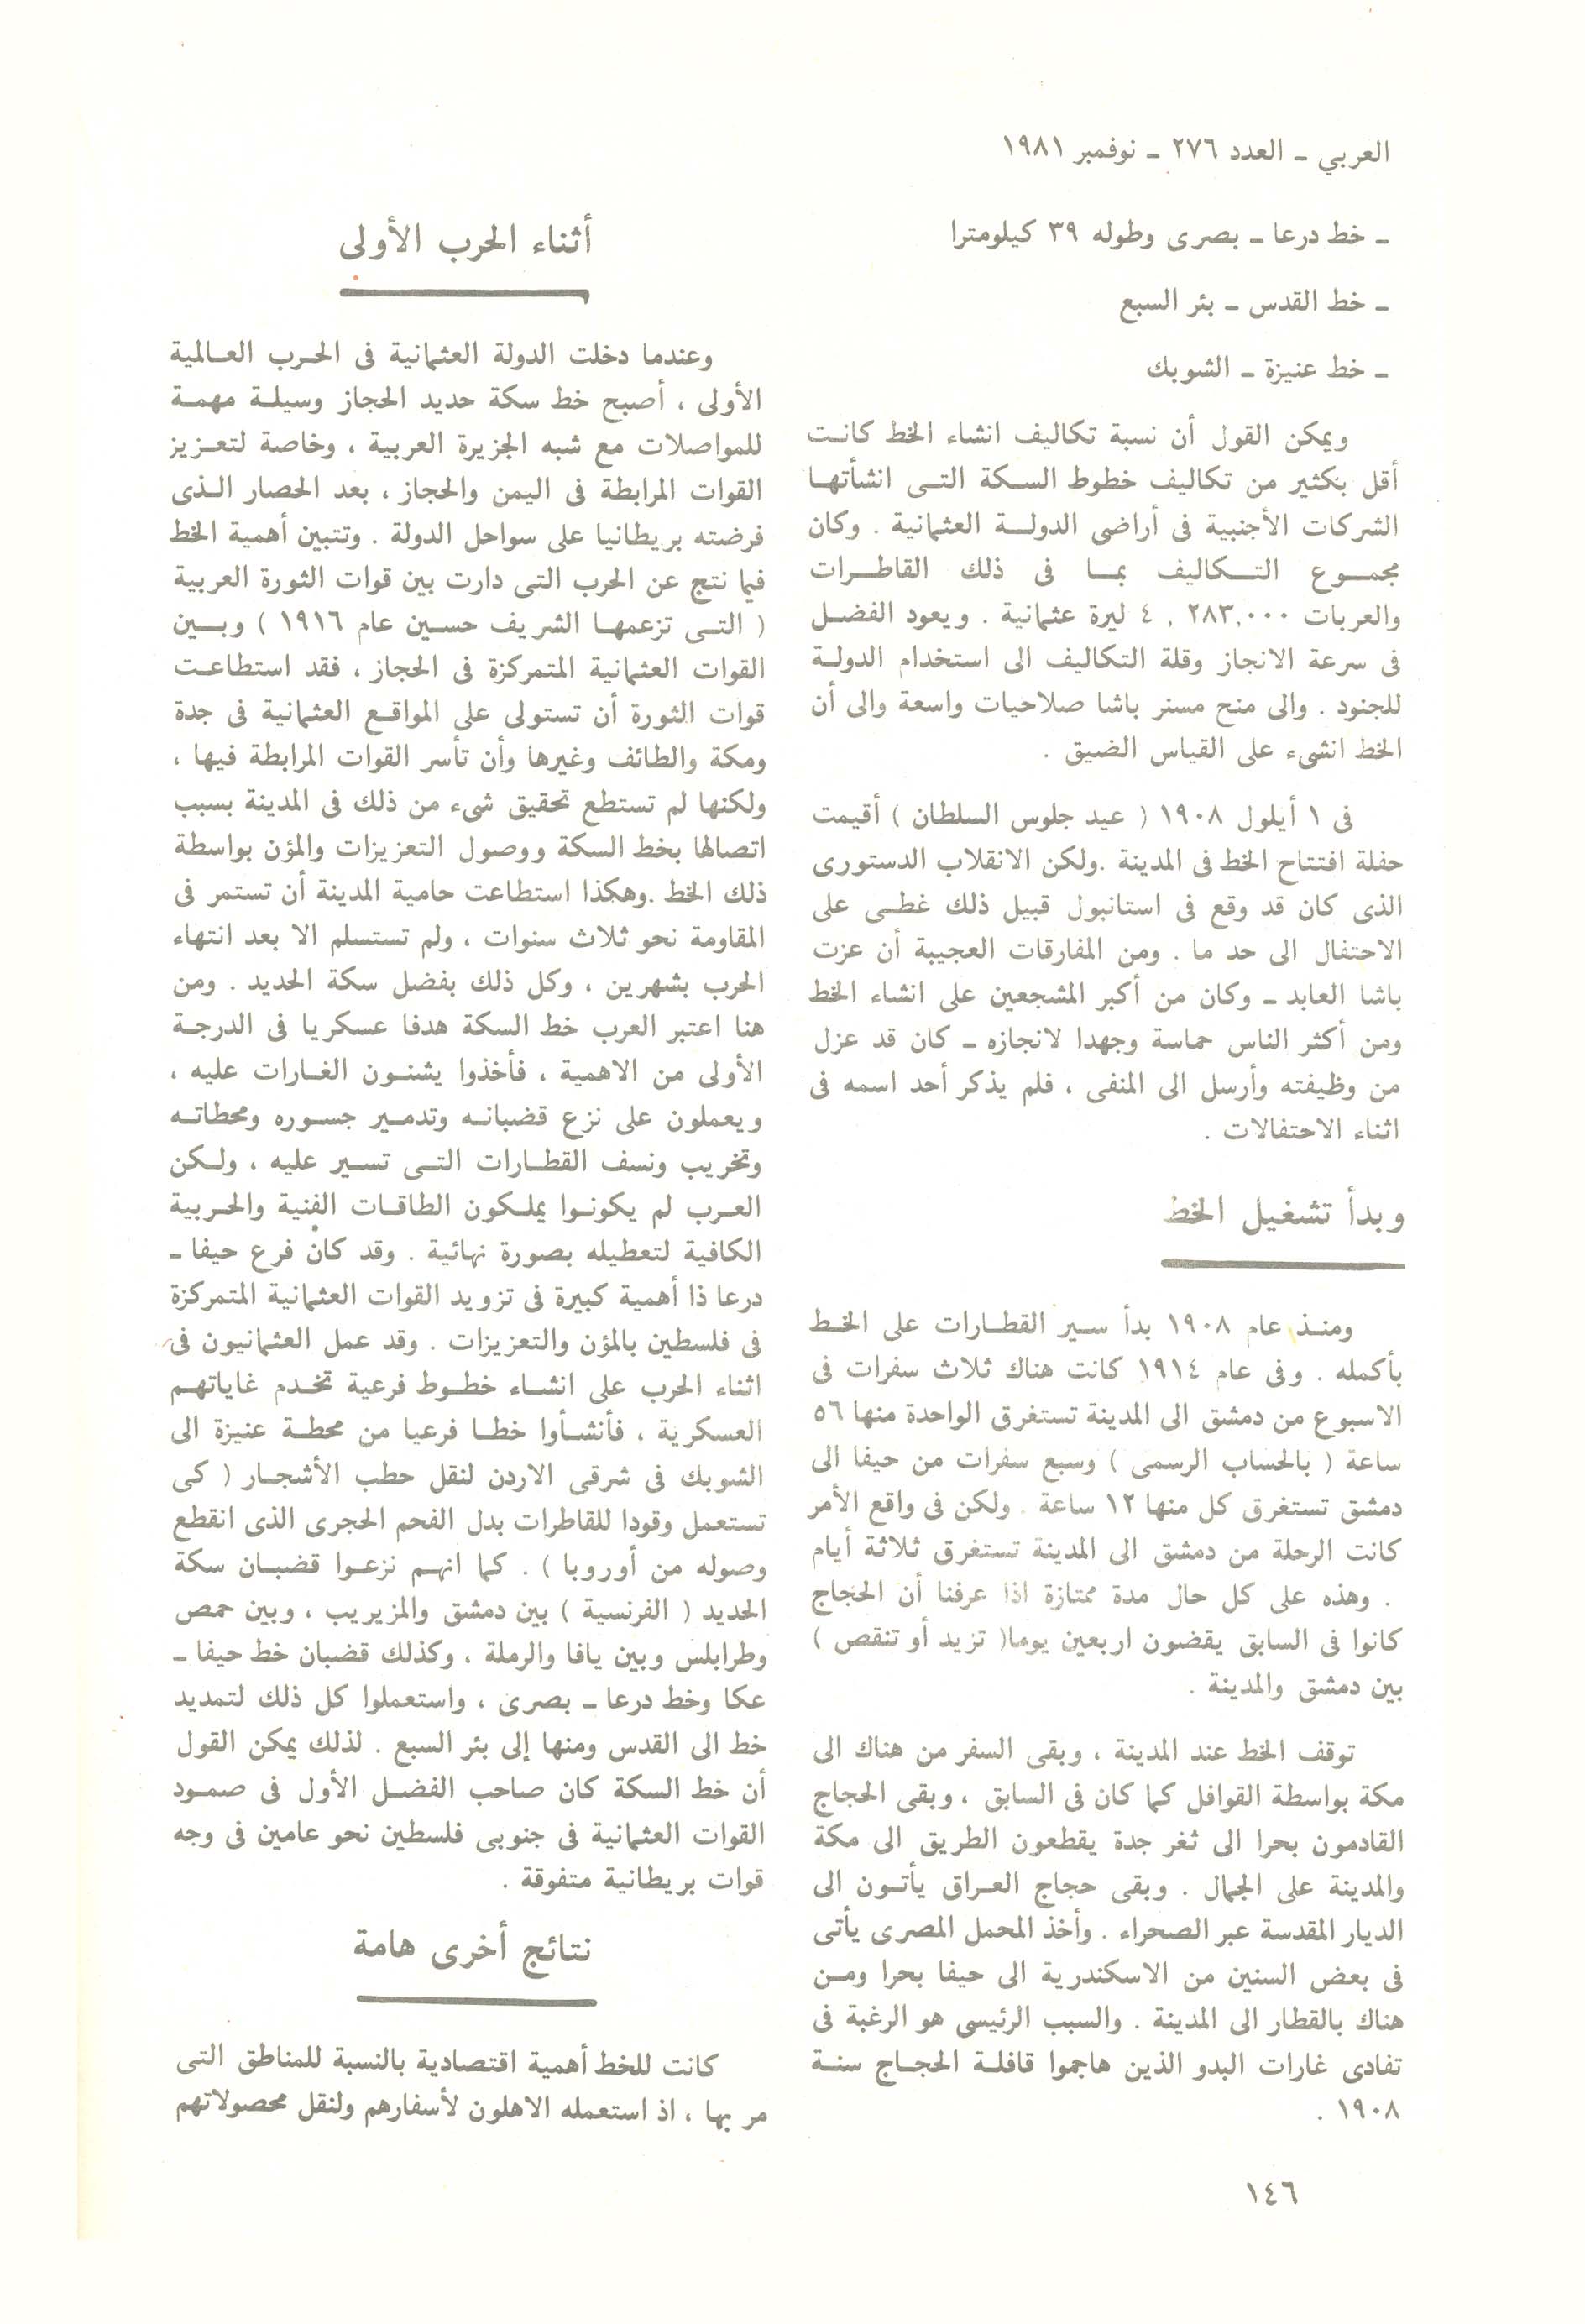 العربي ـ العدد ٢٧٦ ـ نوفمبر ١٩٨١
ـ خط درعا ـ بصرى وطوله ٣٩ كيلومترا
ـ خط القدس ـ بئر السبع
ـ خط عنيزة ـ الشوبك
ويمكن القول أن نسبة تكاليف انشاء الخط كانت
أقل بكثير من تكاليف خطوط السكة التى انشأتها
الشركات الأجنبية فى أراضى الدولة العثمانية . وكان
مجموع التكاليف بما فى ذلك القاطرات
والعربات ٢٨٣,٠٠٠ , ٤ ليرة عثمانية . ويعود الفضل
فى سرعة الانجاز وقلة التكاليف الى استخدام الدولة
للجنود . والى منح مسنر باشا صلاحيات واسعة والى أن
الخط انشىء على القياس الضيق .
فى ١ أيلول ١٩٠٨ ( عيد جلوس السلطان ) أقيمت
حفلة افتتاح الخط فى المدينة .ولكن الانقلاب الدستورى
الذى كان قد وقع فى استانبول قبيل ذلك غطى على
الاحتفال الى حد ما . ومن المفارقات العجيبة أن عزت
باشا العابد ـ وكان من أكبر المشجعين على انشاء الخط
ومن أكثر الناس حماسة وجهدا لانجازه ـ كان قد عزل
من وظيفته وأرسل الى المنفى ، فلم يذكر أحد اسمه فى
اثناء الاحتفالات .
وبدأ تشغيل الخط
ومنذ عام ١٩٠٨ بدأ سير القطارات على الخط
بأكمله . وفى عام ١٩١٤ كانت هناك ثلاث سفرات فى
الاسبوع من دمشق الى المدينة تستغرق الواحدة منها ٥٦
ساعة ( بالحساب الرسمى ) وسبع سفرات من حيفا الى
دمشق تستغرق كل منها ١٢ ساعة . ولكن فى واقع الأمر
كانت الرحلة من دمشق الى المدينة تستغرق ثلاثة أيام
. وهذه على كل حال مدة ممتازة اذا عرفنا أن الحجاج
كانوا فى السابق يقضون اربعين يوما( تزيد أو تنقص )
بين دمشق والمدينة .
توقف الخط عند المدينة ، وبقى السفر من هناك الى
مكة بواسطة القوافل كما كان فى السابق ، وبقى الحجاج
القادمون بحرا الى ثغر جدة يقطعون الطريق الى مكة
والمدينة على الجمال . وبقى حجاج العراق يأتون الى
الديار المقدسة عبر الصحراء . وأخذ المحمل المصرى يأتى
فى بعض السنين من الاسكندرية الى حيفا بحرا ومن
هناك بالقطار الى المدينة . والسبب الرئيسى هو الرغبة فى
تفادى غارات البدو الذين هاجموا قافلة الحجاج سنة
١٩٠٨ .
أثناء الحرب الأولى
وعندما دخلت الدولة العثمانية فى الحرب العالمية
الأولى ، أصبح خط سكة حديد الحجاز وسيلة مهمة
للمواصلات مع شبه الجزيرة العربية ، وخاصة لتعزيز
القوات المرابطة فى اليمن والحجاز ، بعد الحصار الذى
فرضته بريطانيا على سواحل الدولة . وتتبين أهمية الخط
فيما نتج عن الحرب التى دارت بين قوات الثورة العربية
( التى تزعمها الشريف حسين عام ١٩١٦ ) وبين
القوات العثمانية المتمركزة فى الحجاز ، فقد استطاعت
قوات الثورة أن تستولى على المواقع العثمانية فى جدة
ومكة والطائف وغيرها وأن تأسر القوات المرابطة فيها ،
ولكنها لم تستطع تحقيق شىء من ذلك فى المدينة بسبب
اتصالها بخط السكة ووصول التعزيزات والمؤن بواسطة
ذلك الخط .وهكذا استطاعت حامية المدينة أن تستمر فى
المقاومة نحو ثلاث سنوات ، ولم تستسلم الا بعد انتهاء
الحرب بشهرين ، وكل ذلك بفضل سكة الحديد . ومن
هنا اعتبر العرب خط السكة هدفا عسكريا فى الدرجة
الأولى من الاهمية ، فأخذوا يشنون الغارات عليه ،
ويعملون على نزع قضبانه وتدمير جسوره ومحطاته
وتخريب ونسف القطارات التى تسير عليه ، ولكن
العرب لم يكونوا يملكون الطاقات الفنية والحربية
الكافية لتعطيله بصورة نهائية . وقد كان فرع حيفا ـ
درعا ذا أهمية كبيرة فى تزويد القوات العثمانية المتمركزة
فى فلسطين بالمؤن والتعزيزات . وقد عمل العثمانيون فى
اثناء الحرب على انشاء خطوط فرعية تخدم غاياتهم
العسكرية ، فأنشأوا خطا فرعيا من محطة عنيزة الى
الشوبك فى شرقى الاردن لنقل حطب الأشجار ( كى
تستعمل وقودا للقاطرات بدل الفحم الحجرى الذى انقطع
وصوله من أوروبا ) . كما انهم نزعوا قضبان سكة
الحديد ( الفرنسية ) بين دمشق والمزيريب ، وبين حمص
وطرابلس وبين يافا والرملة ، وكذلك قضبان خط حيفا ـ
عكا وخط درعا ـ بصرى ، واستعملوا كل ذلك لتمديد
خط الى القدس ومنها إلى بئر السبع . لذلك يمكن القول
أن خط السكة كان صاحب الفضل الأول فى صمود
القوات العثمانية فى جنوبى فلسطين نحو عامين فى وجه
قوات بريطانية متفوقة .
نتائج أخرى هامة
كانت للخط أهمية اقتصادية بالنسبة للمناطق التى
مر بها ، اذ استعمله الاهلون لأسفارهم ولنقل محصولاتهم
١٤٦